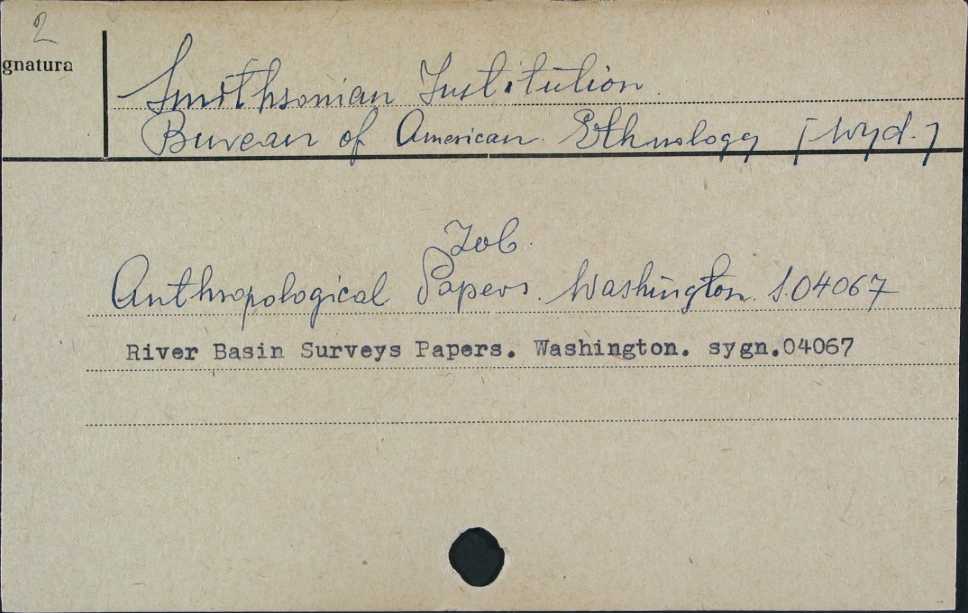 2
gnatura
Smithsonian Institution.
Bureau of American Ethnology [Wyd.]
Zob.
Anthropological Papers. Washington. S.04067
River Basin Surveys Papers. Washington. sygn.04067